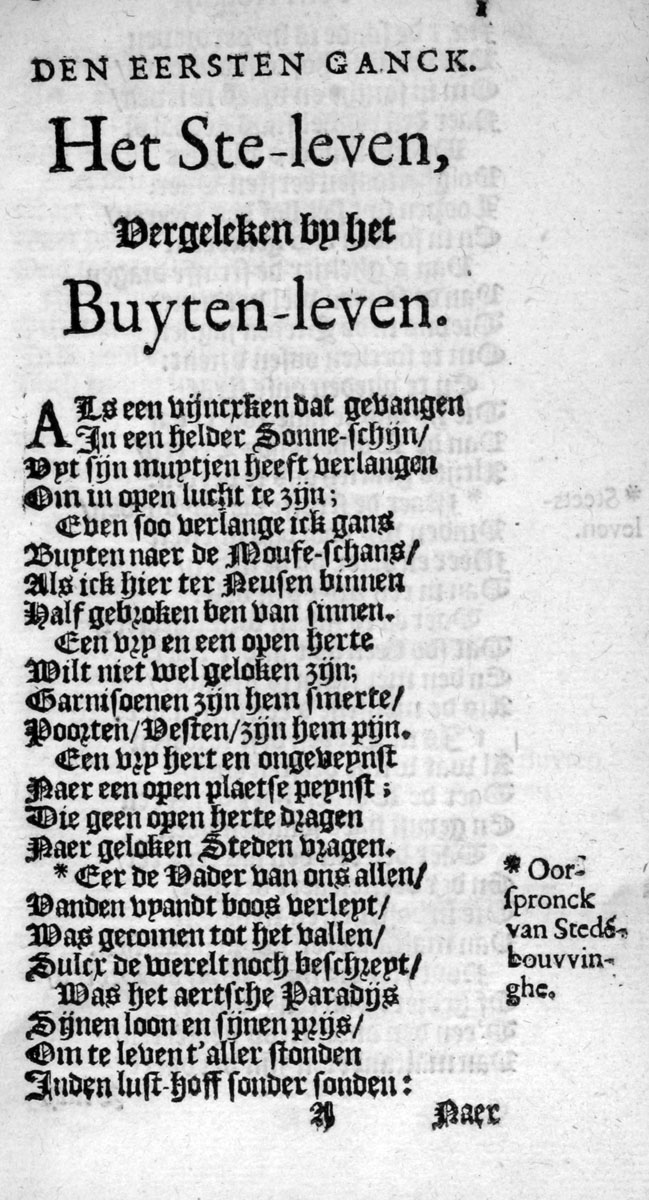 1
DEN EERSTEN GANCK.
Het Ste-leven,
Vergeleken by het
Buyten-leven.
ALs een vijncxken dat gevangen
In een helder Sonne-schijn/
Vyt sijn muytjen heeft verlangen
Om in open lucht te zijn;
Even soo verlange ick gans
Buyten naer de Moufe-schans/
Als ick hier ter Neusen binnen
Half gebroken ben van sinnen.
Een vry en een open herte
Wilt niet wel geloken zijn;
Garnisoenen zijn hem smerte/
Poorten/Vesten/zijn hem pijn.
Een vry hert en ongeveynst
Naer een open plaetse peynst;
Die geen open herte dragen
Naer geloken Steden vragen.
* Eer de Vader van ons allen/
Vanden vyandt boos verleyt/
Was gecomen tot het vallen/
Sulcx de werelt noch beschreyt/
Was het aertsche Paradijs
Sijnen loon en sijnen prijs/
Om te leven t'aller stonden
Inden lust-hoff sonder sonden:
* Oor-
spronck
van Stede-
bouvvin-
ghe.
A
Naer